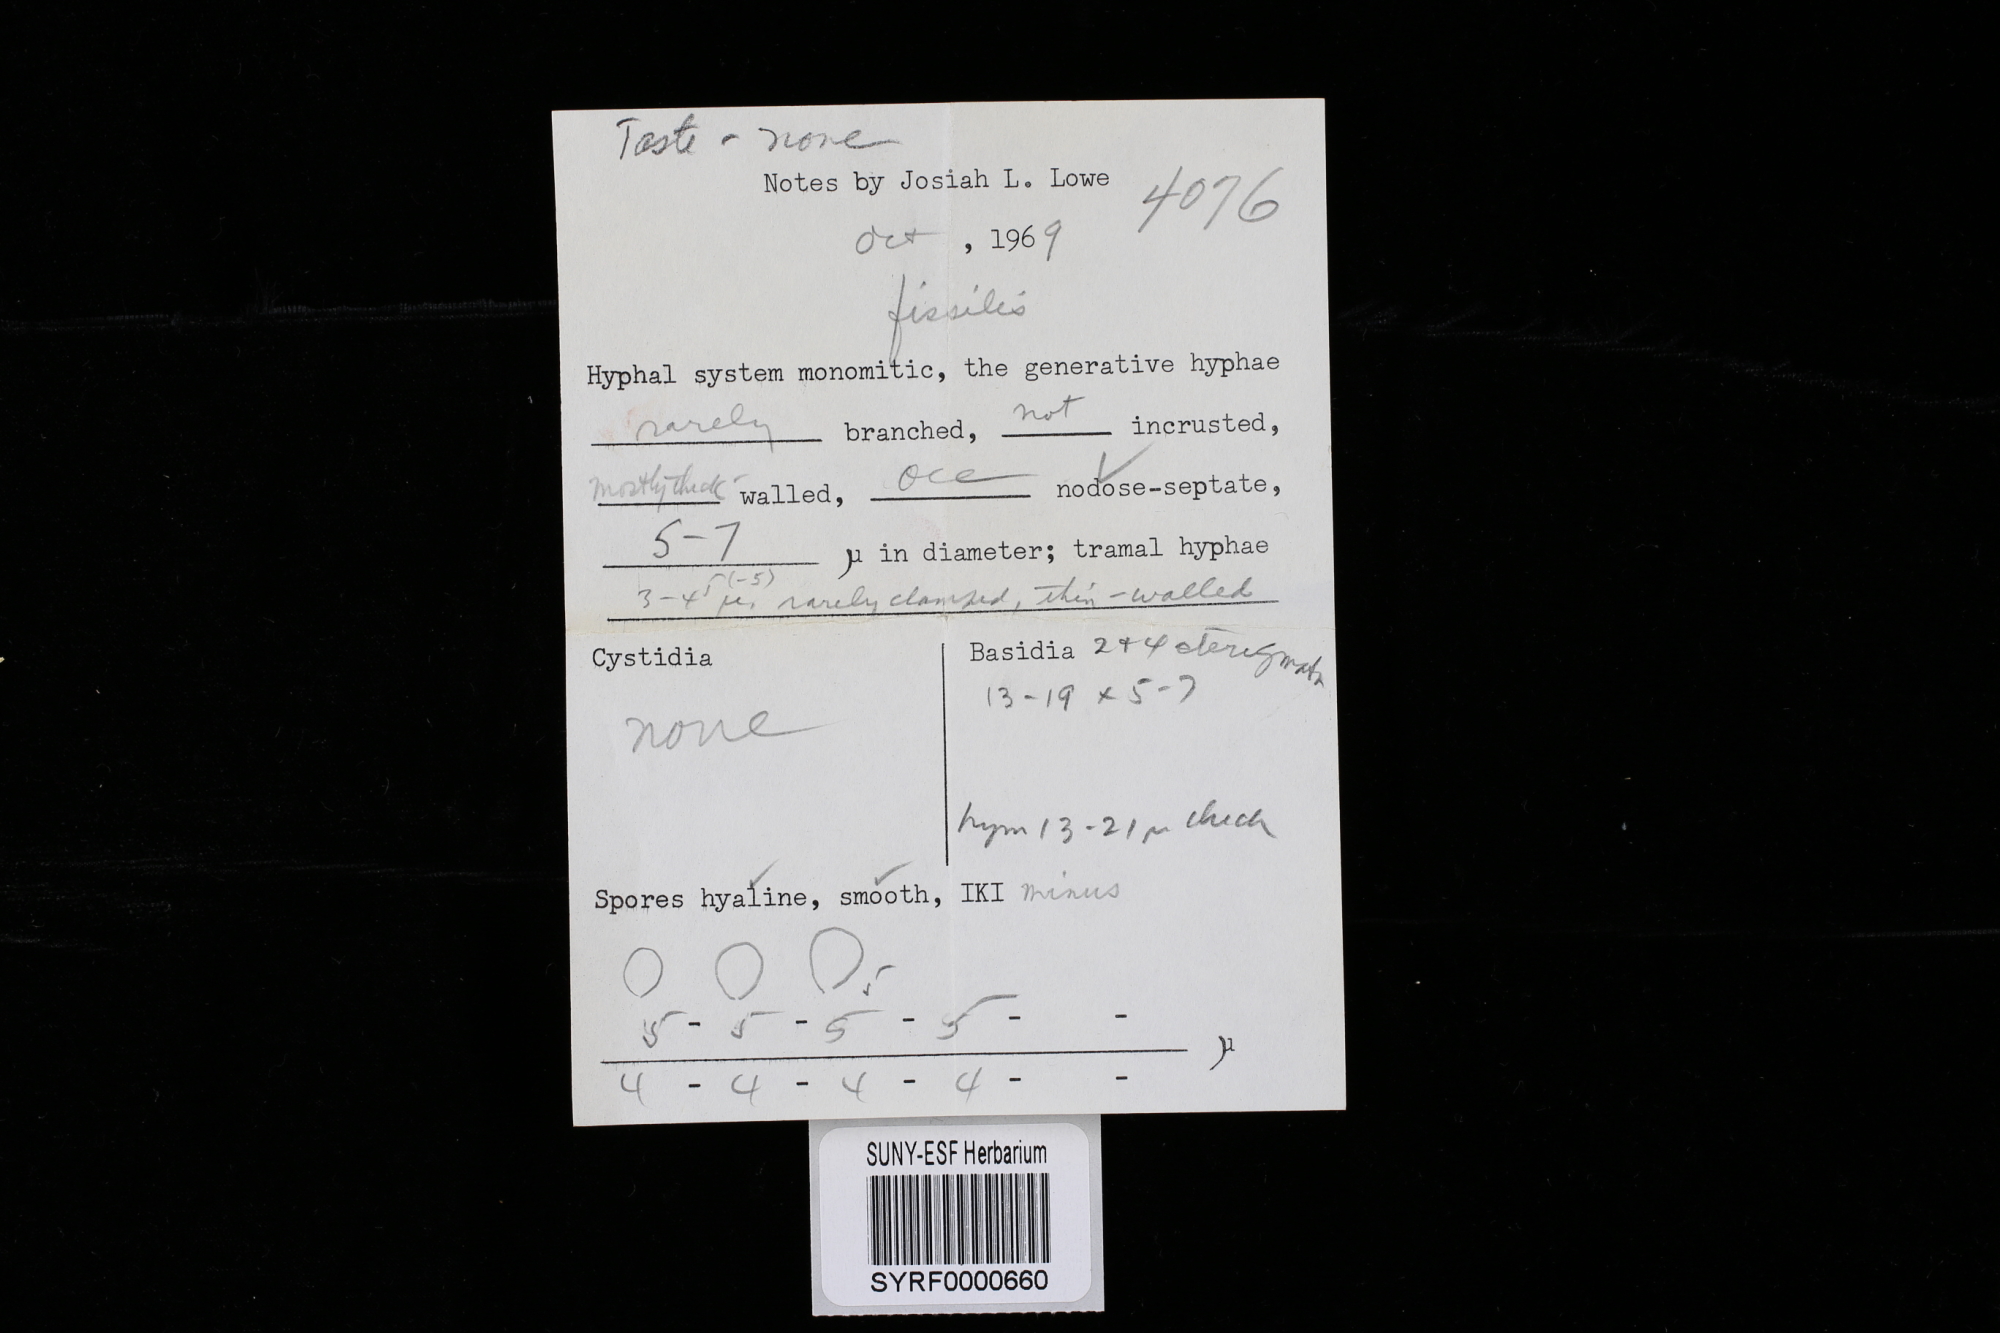 Taste - none
Notes by Josiah L. Lowe
4076
Oct , 1969
fissilis
Hyphal system monomitic, the generative hyphae
rarely branched, not incrusted,
mostly thick- walled, occ nodose-septate,
5-7 µ in diameter; tramal hyphae
3-4 (-5) µ, rarely clamped, thin-walled
Cystidia
none
Basidia 2+4 sterigmata
13-19 x 5-7
hym 13-21 µ thick
Spores hyaline, smooth, IKI minus
5
5 - 5 - 5 - 5 - -
µ
4 - 4 - 4 - 4 - -
SUNY-ESF Herbarium
SYRF0000660